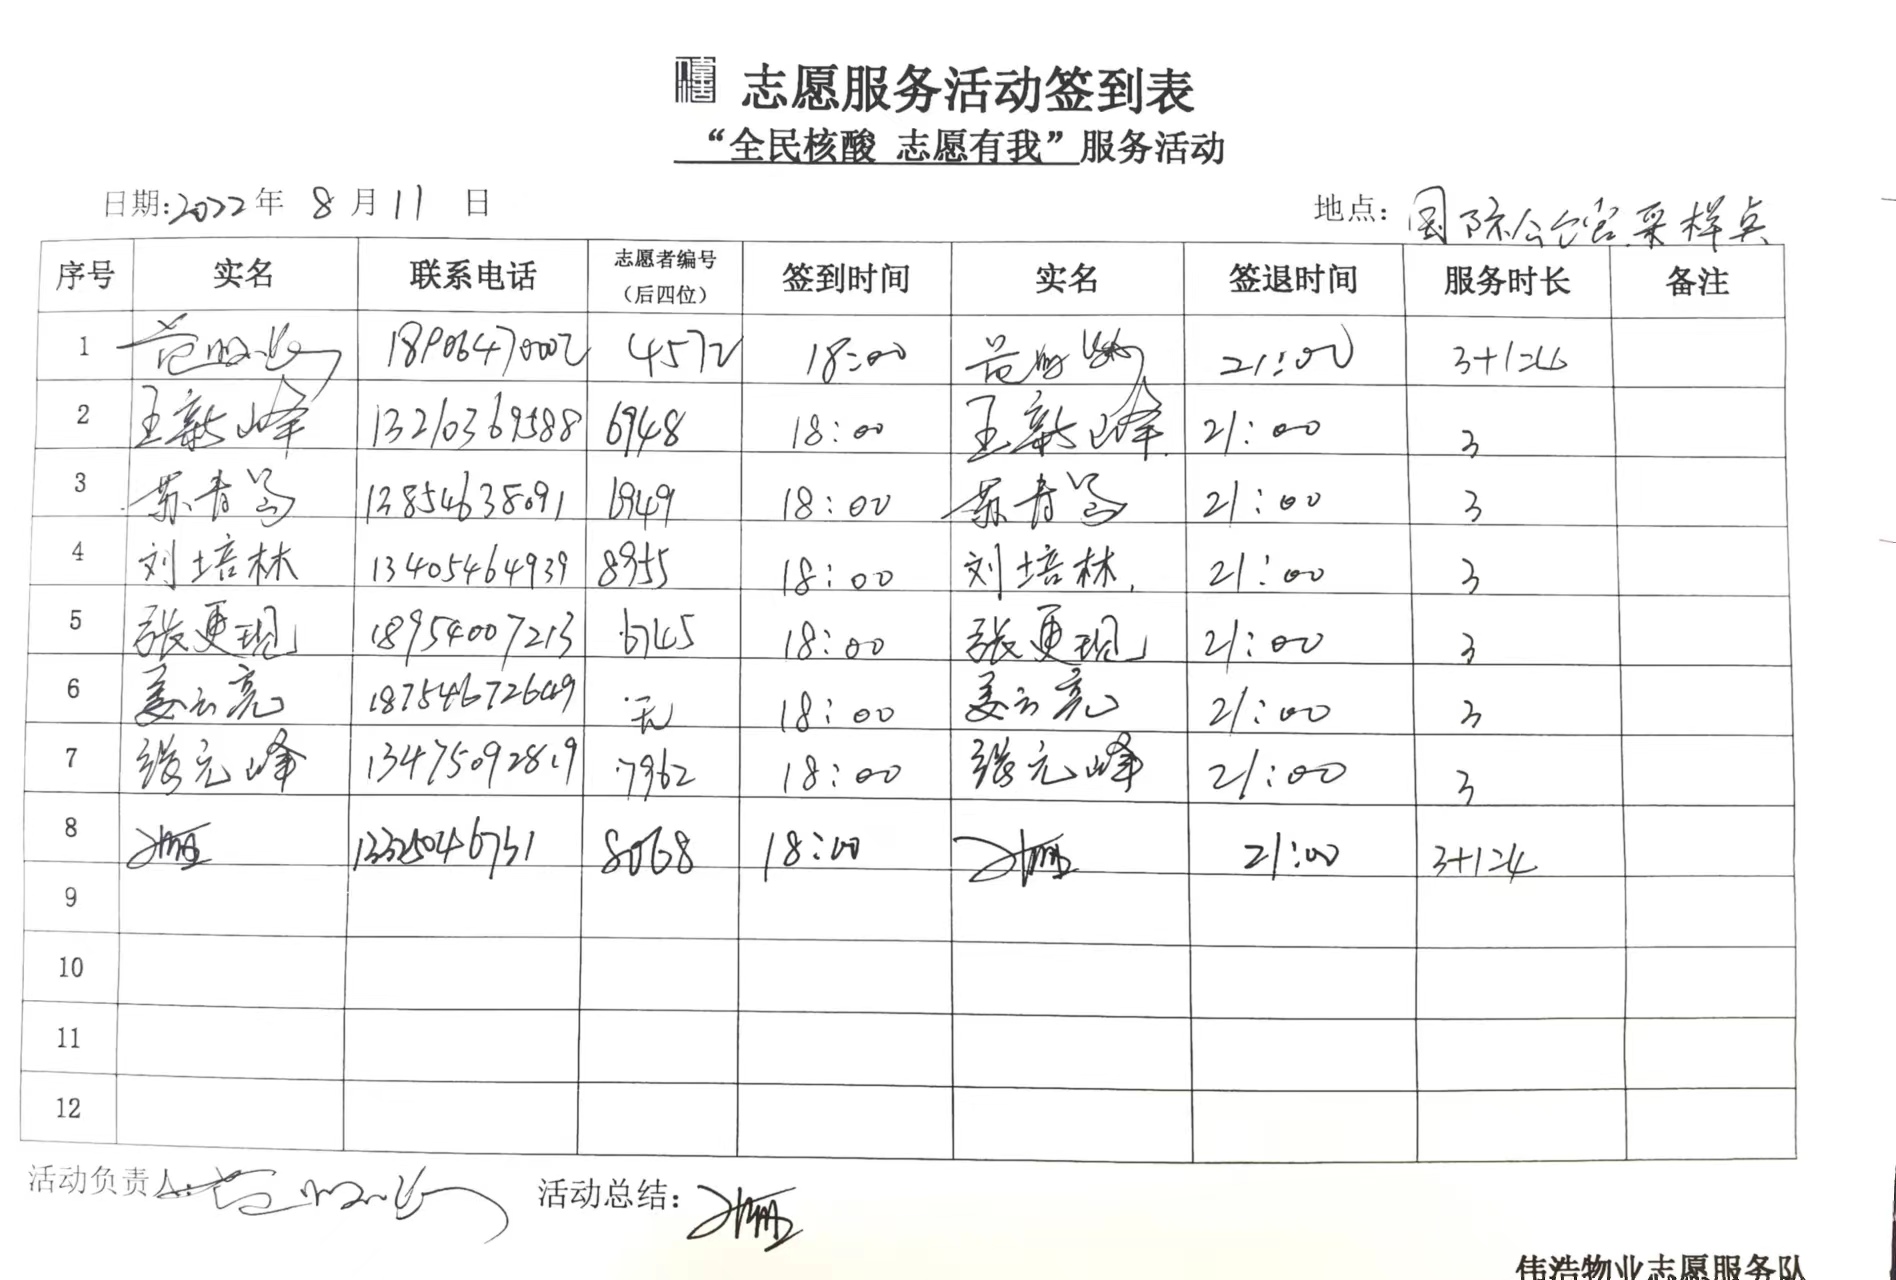 志愿服务活动签到表
“全民核酸 志愿有我”服务活动
日期:2022年 8 月 11 日 地点: 国际公馆采样点
序号 实名 联系电话 志愿者编号（后四位） 签到时间 实名 签退时间 服务时长 备注
1 18906470002 4572 18:00 21:00 3+1=4
2 王新峰 13210369588 6948 18:00 王新峰 21:00 3
3 苏青 13854638091 6949 18:00 苏青 21:00 3
4 刘培林 13405464939 8955 18:00 刘培林 21:00 3
5 张更现 18954007213 6745 18:00 张更现 21:00 3
6 姜云亮 18754672649 无 18:00 姜云亮 21:00 3
7 张元峰 13475092819 7962 18:00 张元峰 21:00 3
8 8068 18:00 21:00 3+1=4
9
10
11
12
活动负责人: 活动总结:
伟浩物业志愿服务队